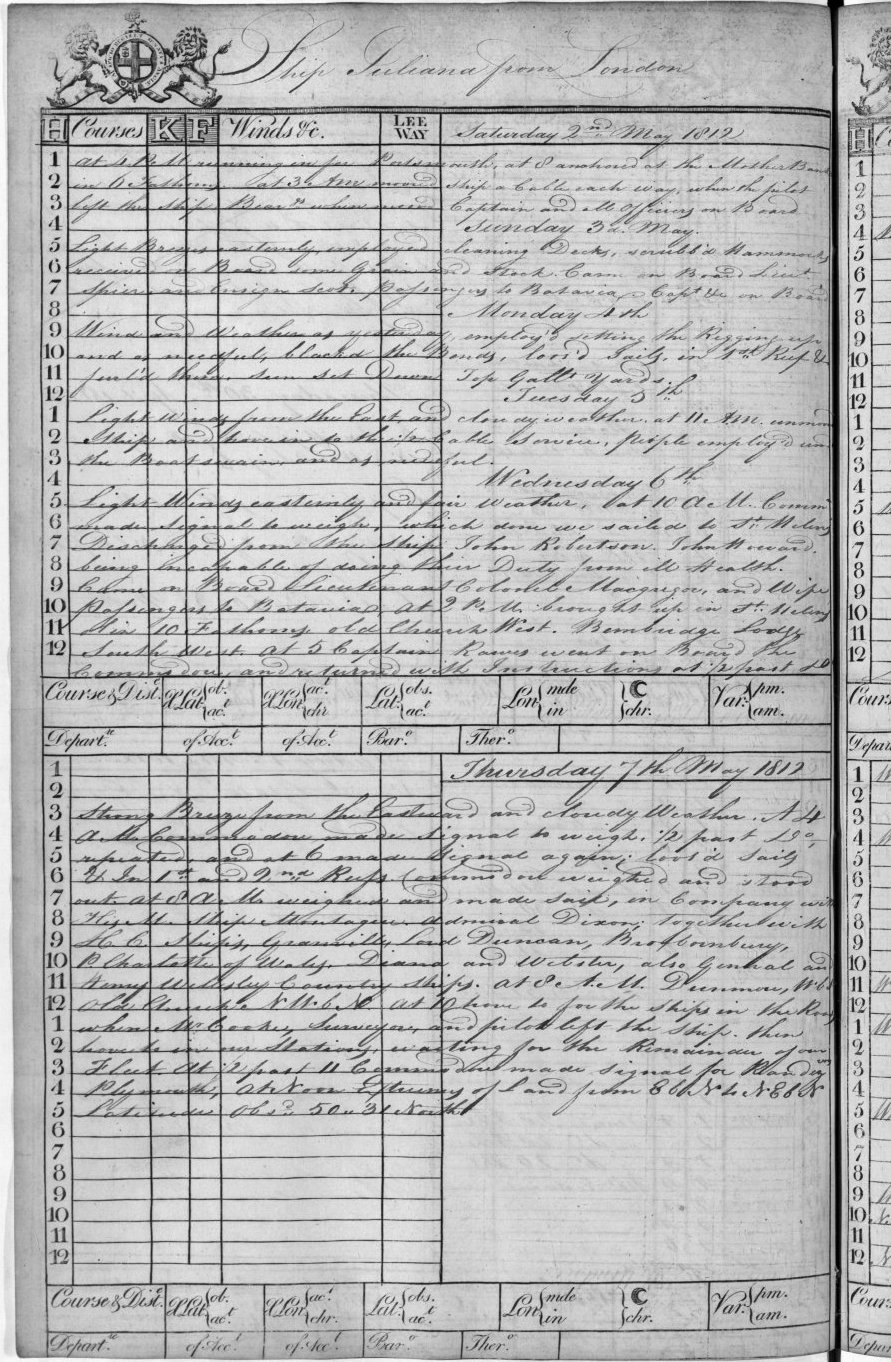 Ship Juliana from London
H Courses K F Winds &c. LEE WAY Saturday 2nd May 1812
1 at 4 P M running in for Portsmouth, at 8 anchored at the Mother Bank
2 in 6 Fathoms at 3 AM moored Ship a Cable each way, when the pilot
3 left the Ship Captain and all Officers on Board
4 Sunday 3d. May.
5 Light Breezes easternly, employed cleaning Decks, scrubb'd Hammocks
6 received on Board some Grain and Stock. Came on Board Lieut
7 Spicer and Ensign Scott Passengers to Batavia, Capt &c on Board
8 Monday 4th
9 Wind and Weather as yesterday, employ'd setting the Rigging up
10 and as needful, black'd the Bends, loos'd Sails, in 1st Reef &
11 furl'd them, sun set Down Top Gallt Yards.
12 Tuesday 5th
1 Light Winds from the East, and cloudy weather, at 11 AM. unmoor'd
2 Ship and hove in to the 1/2 Cable service, People employ'd
3 the Boatswain, and as needful.
4 Wednesday 6th
5 Light Winds easternly and fair Weather, at 10 A M. Comm
6 made Signal to weigh, which done we sailed to St Helens
7 Discharged from the Ship, John Robertson. John Howard.
8 being incapable of doing their Duty from ill Health.
9 Came on Board Lieutenant Colonel Macgregor, and Wife
10 Passengers to Batavia, at 2 P. M. brought up in St. Helens
11 in 10 Fathoms old Church West. Bembridge Lodge
12 South West. At 5 Captain Rawes went on Board the
Commodore and returned with Instructions at 1/2 past
Course & Dist. X Lat. ob. ac.t X Lon ac.t chr Lat. obs. ac.t Lon mde in ☾ chr. Var. pm. am.
Depart.re of Acc.t of Acc.t Bar.o Ther.o
1 Thursday 7th May 1812
2
3 Strong Breeze from the Eastward and cloudy Weather. At 4
4 A M. Commodore made Signal to weigh. 1/2 past Do,
5 repeated, and at 6 made Signal again; loos'd Sails
6 & In 1st and 2nd Reefs Commodore weighed and stood
7 out at 8 A M. weighed and made sail, in Company with
8 His M. Ship Montague, Admiral Dixon; together with
9 H C Ships, Granville, Lord Duncan, Broxbornbury,
10 P Charlotte of Wales. Diana and Webster, also General and
11 Henry Wellesley Country Ships. at 8 A. M. Dunmore, W b S
12 Old Church N W b N. At 10 hove to for the ships in the
1 when Mr Cooke, Surveyor, and pilot left the Ship. then
2 hove to in our Station, waiting for the Remainder of our
3 Fleet At 1/2 past 11 Commodore made signal for
4 Plymouth, At Noon Extremes of Land from E b N to N E b N
5 Latitude Obsd 50 " 31 North
6
7
8
9
10
11
12
Course & Dist. X Lat. ob. ac.t X Lon ac.t chr. Lat. obs. ac.t Lon mde in ☾ chr. Var. pm. am.
Depart.re of Acc.t of Acc.t Bar.o Ther.o